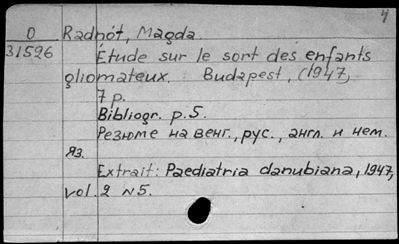 4
O Radnót, Magda.
31596 Étude sur le sort des enfants
gliomateux. Budapest, (1947,
7 p.
Bibliogr. p.5.
Резюме на венг., рус., англ. и нем.
яз.
Extrait: Paediatria danubiana, 1947,
vol. 2 N5.